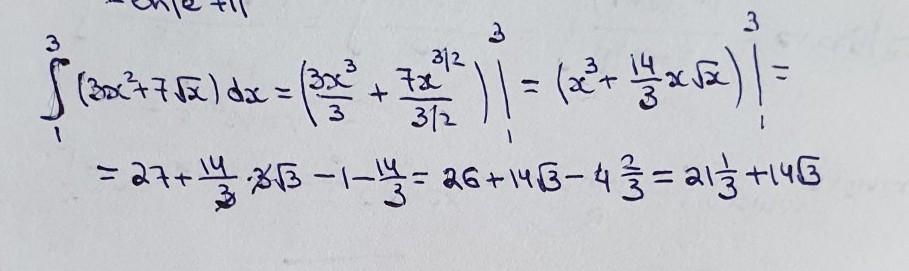 ∫₁³ (3x² + 7√x) dx = (3x³/3 + 7x^(3/2)/(3/2)) |₁³ = (x³ + 14/3 x√x) |₁³ =
= 27 + 14/3 · 3√3 - 1 - 14/3 = 26 + 14√3 - 4 2/3 = 21 1/3 + 14√3